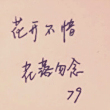 花开不惜
花落勿念
79